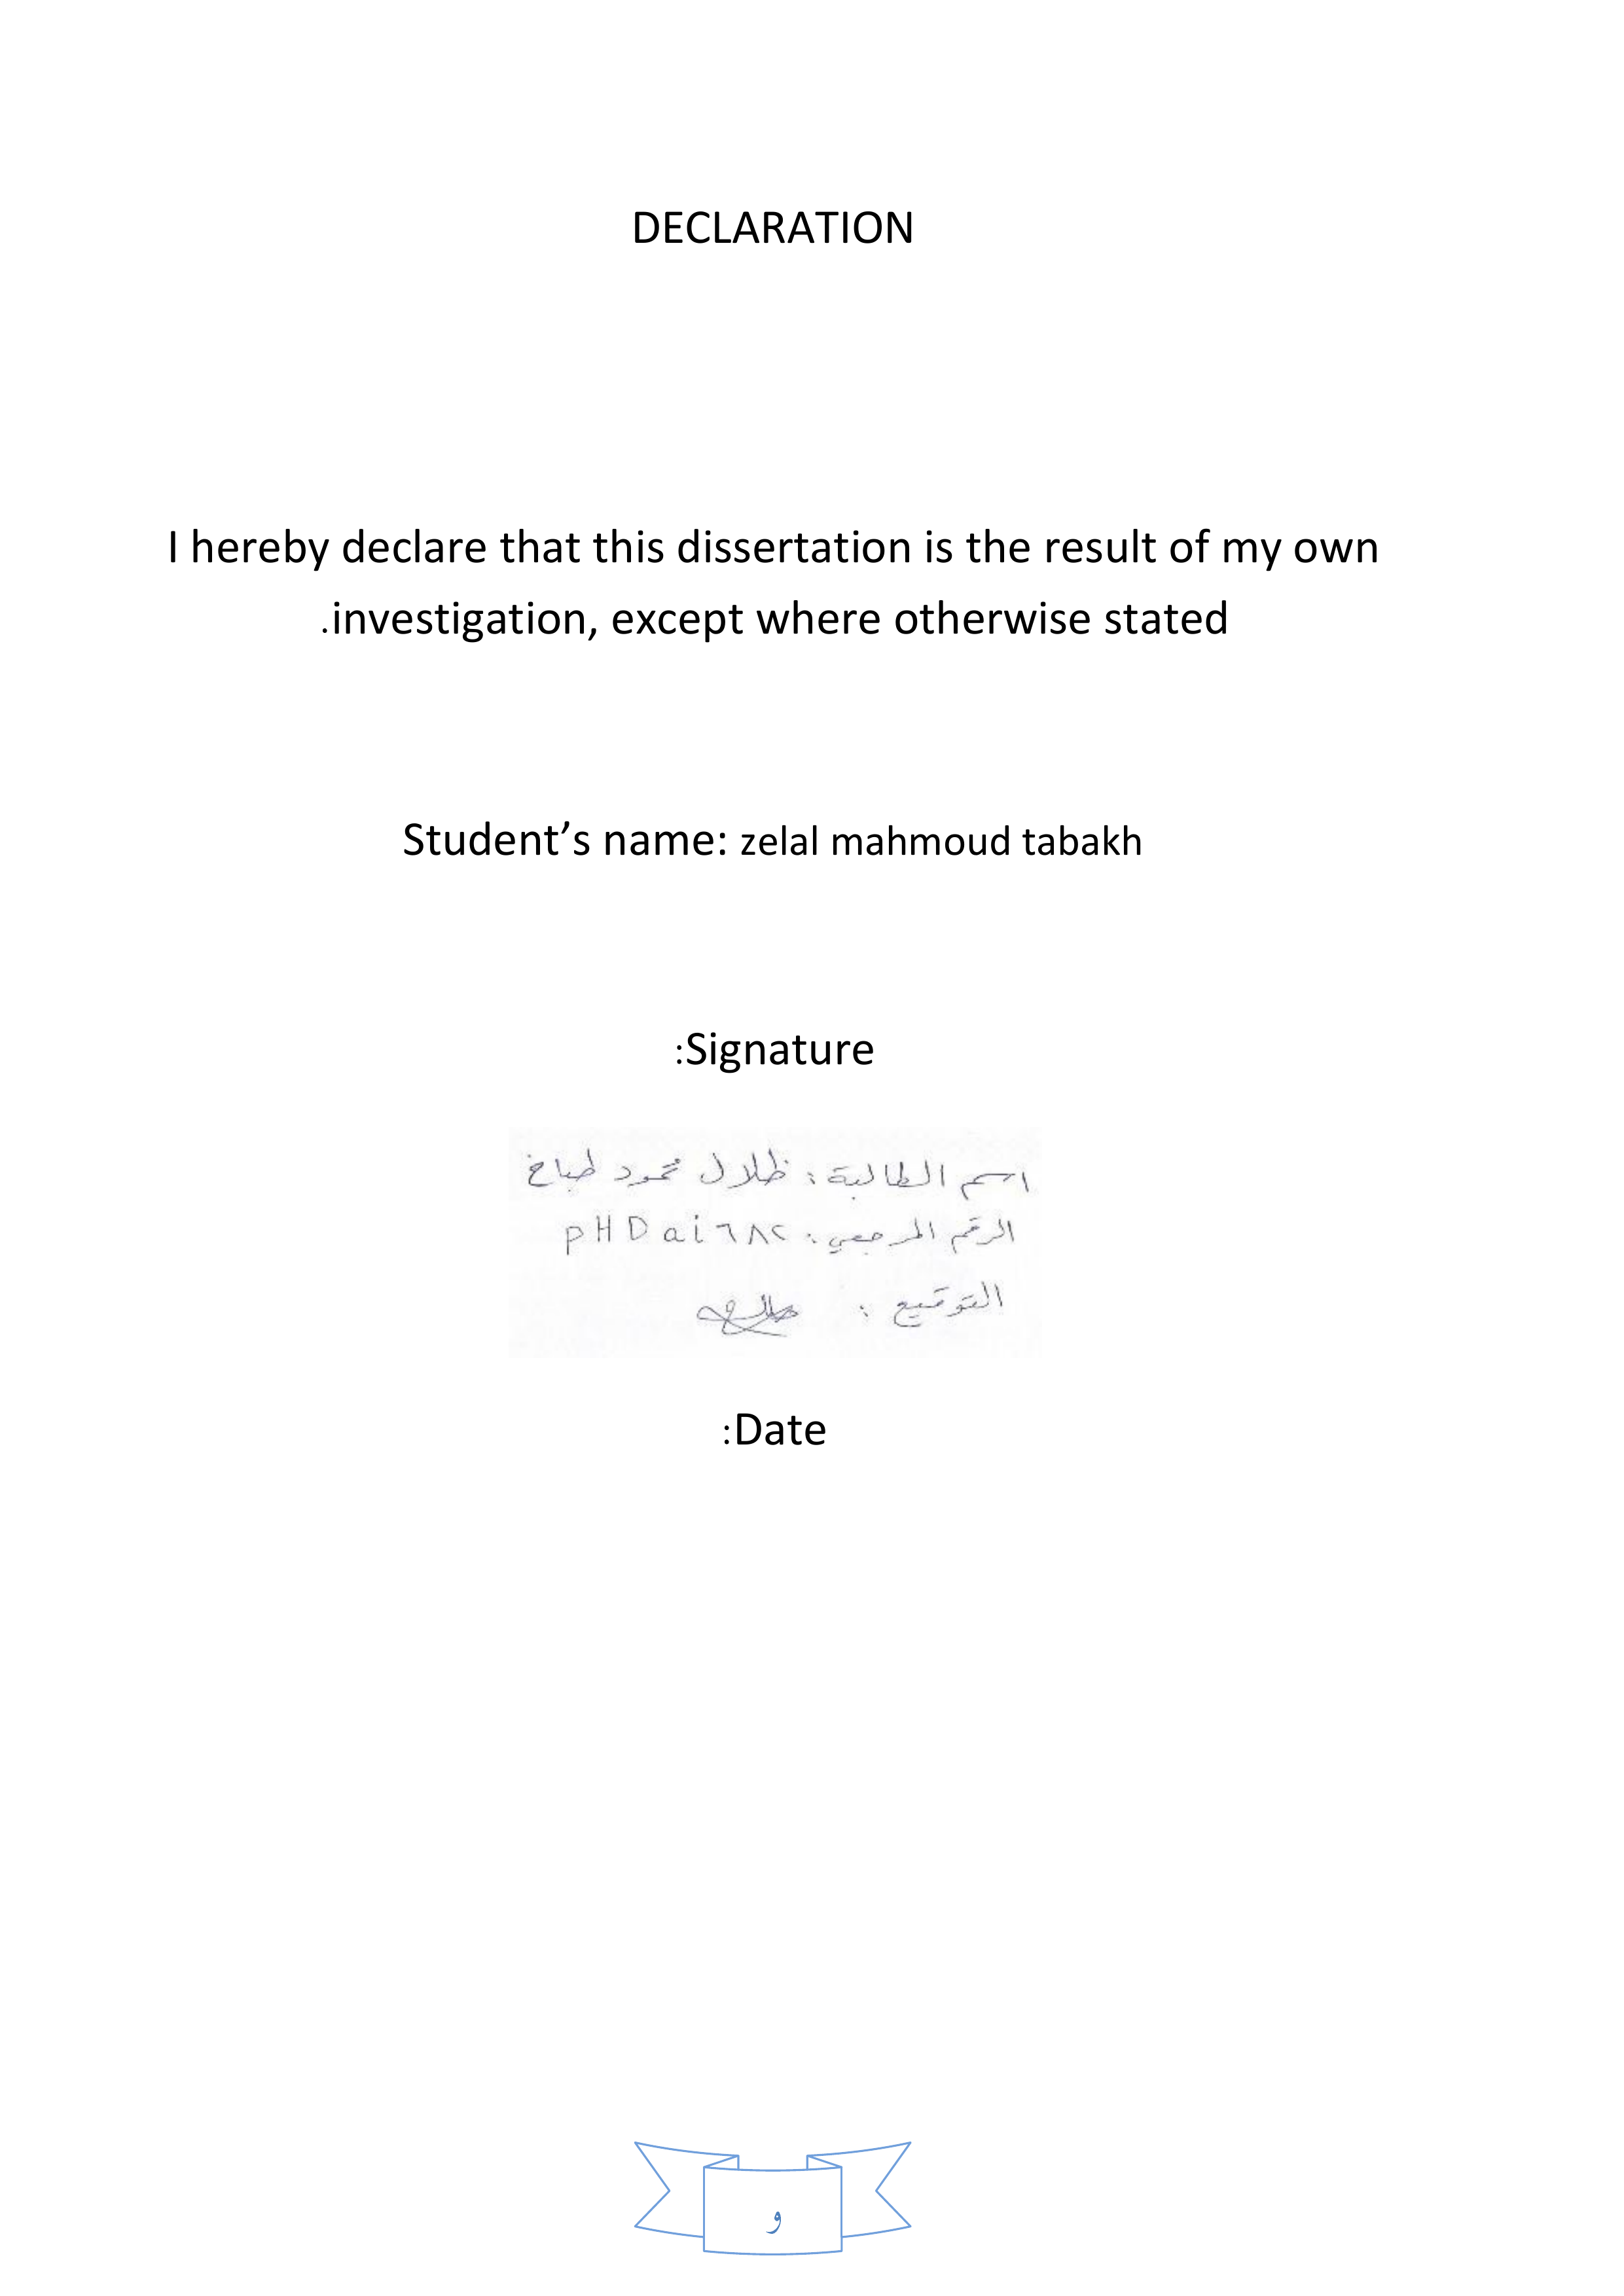 DECLARATION
I hereby declare that this dissertation is the result of my own
investigation, except where otherwise stated.
Student’s name: zelal mahmoud tabakh
Signature:
اسم الطالبة : ظلال محمود طباخ
الرقم المرجعي : pHDai٦٨٢
التوقيع :
Date:
و